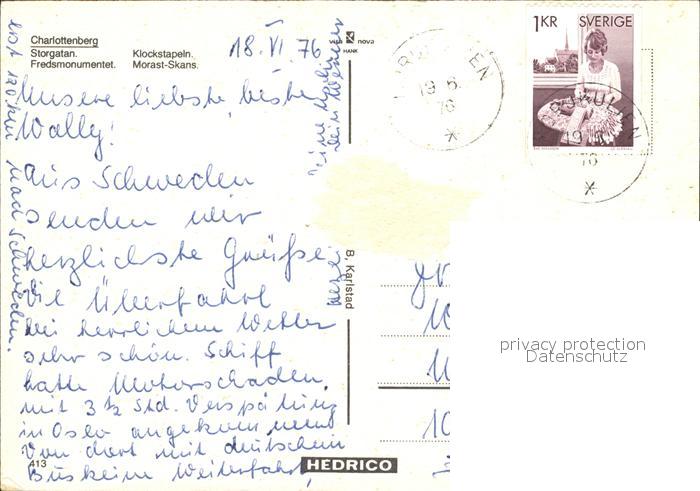 Charlottenberg
Storgatan. Klockstapeln.
Fredsmonumentet. Morast-Skans.
18. VI. 76
nova
HANK
Unsere liebste, beste
Wally!
Aus Schweden
senden wir
herzlichste Grüße
Die Überfahrt
bei herrlichem Wetter
sehr schön. Schiff
hatte Motorschaden,
mit 3 ½ Std. Verspätung
in Oslo angekommen
Von dort mit deutschem
Bus Weiterfahrt,
nach Schweden.
413
HEDRICO
B. Karlstad
1 KR SVERIGE
19 6.
76
19
76
privacy protection
Datenschutz